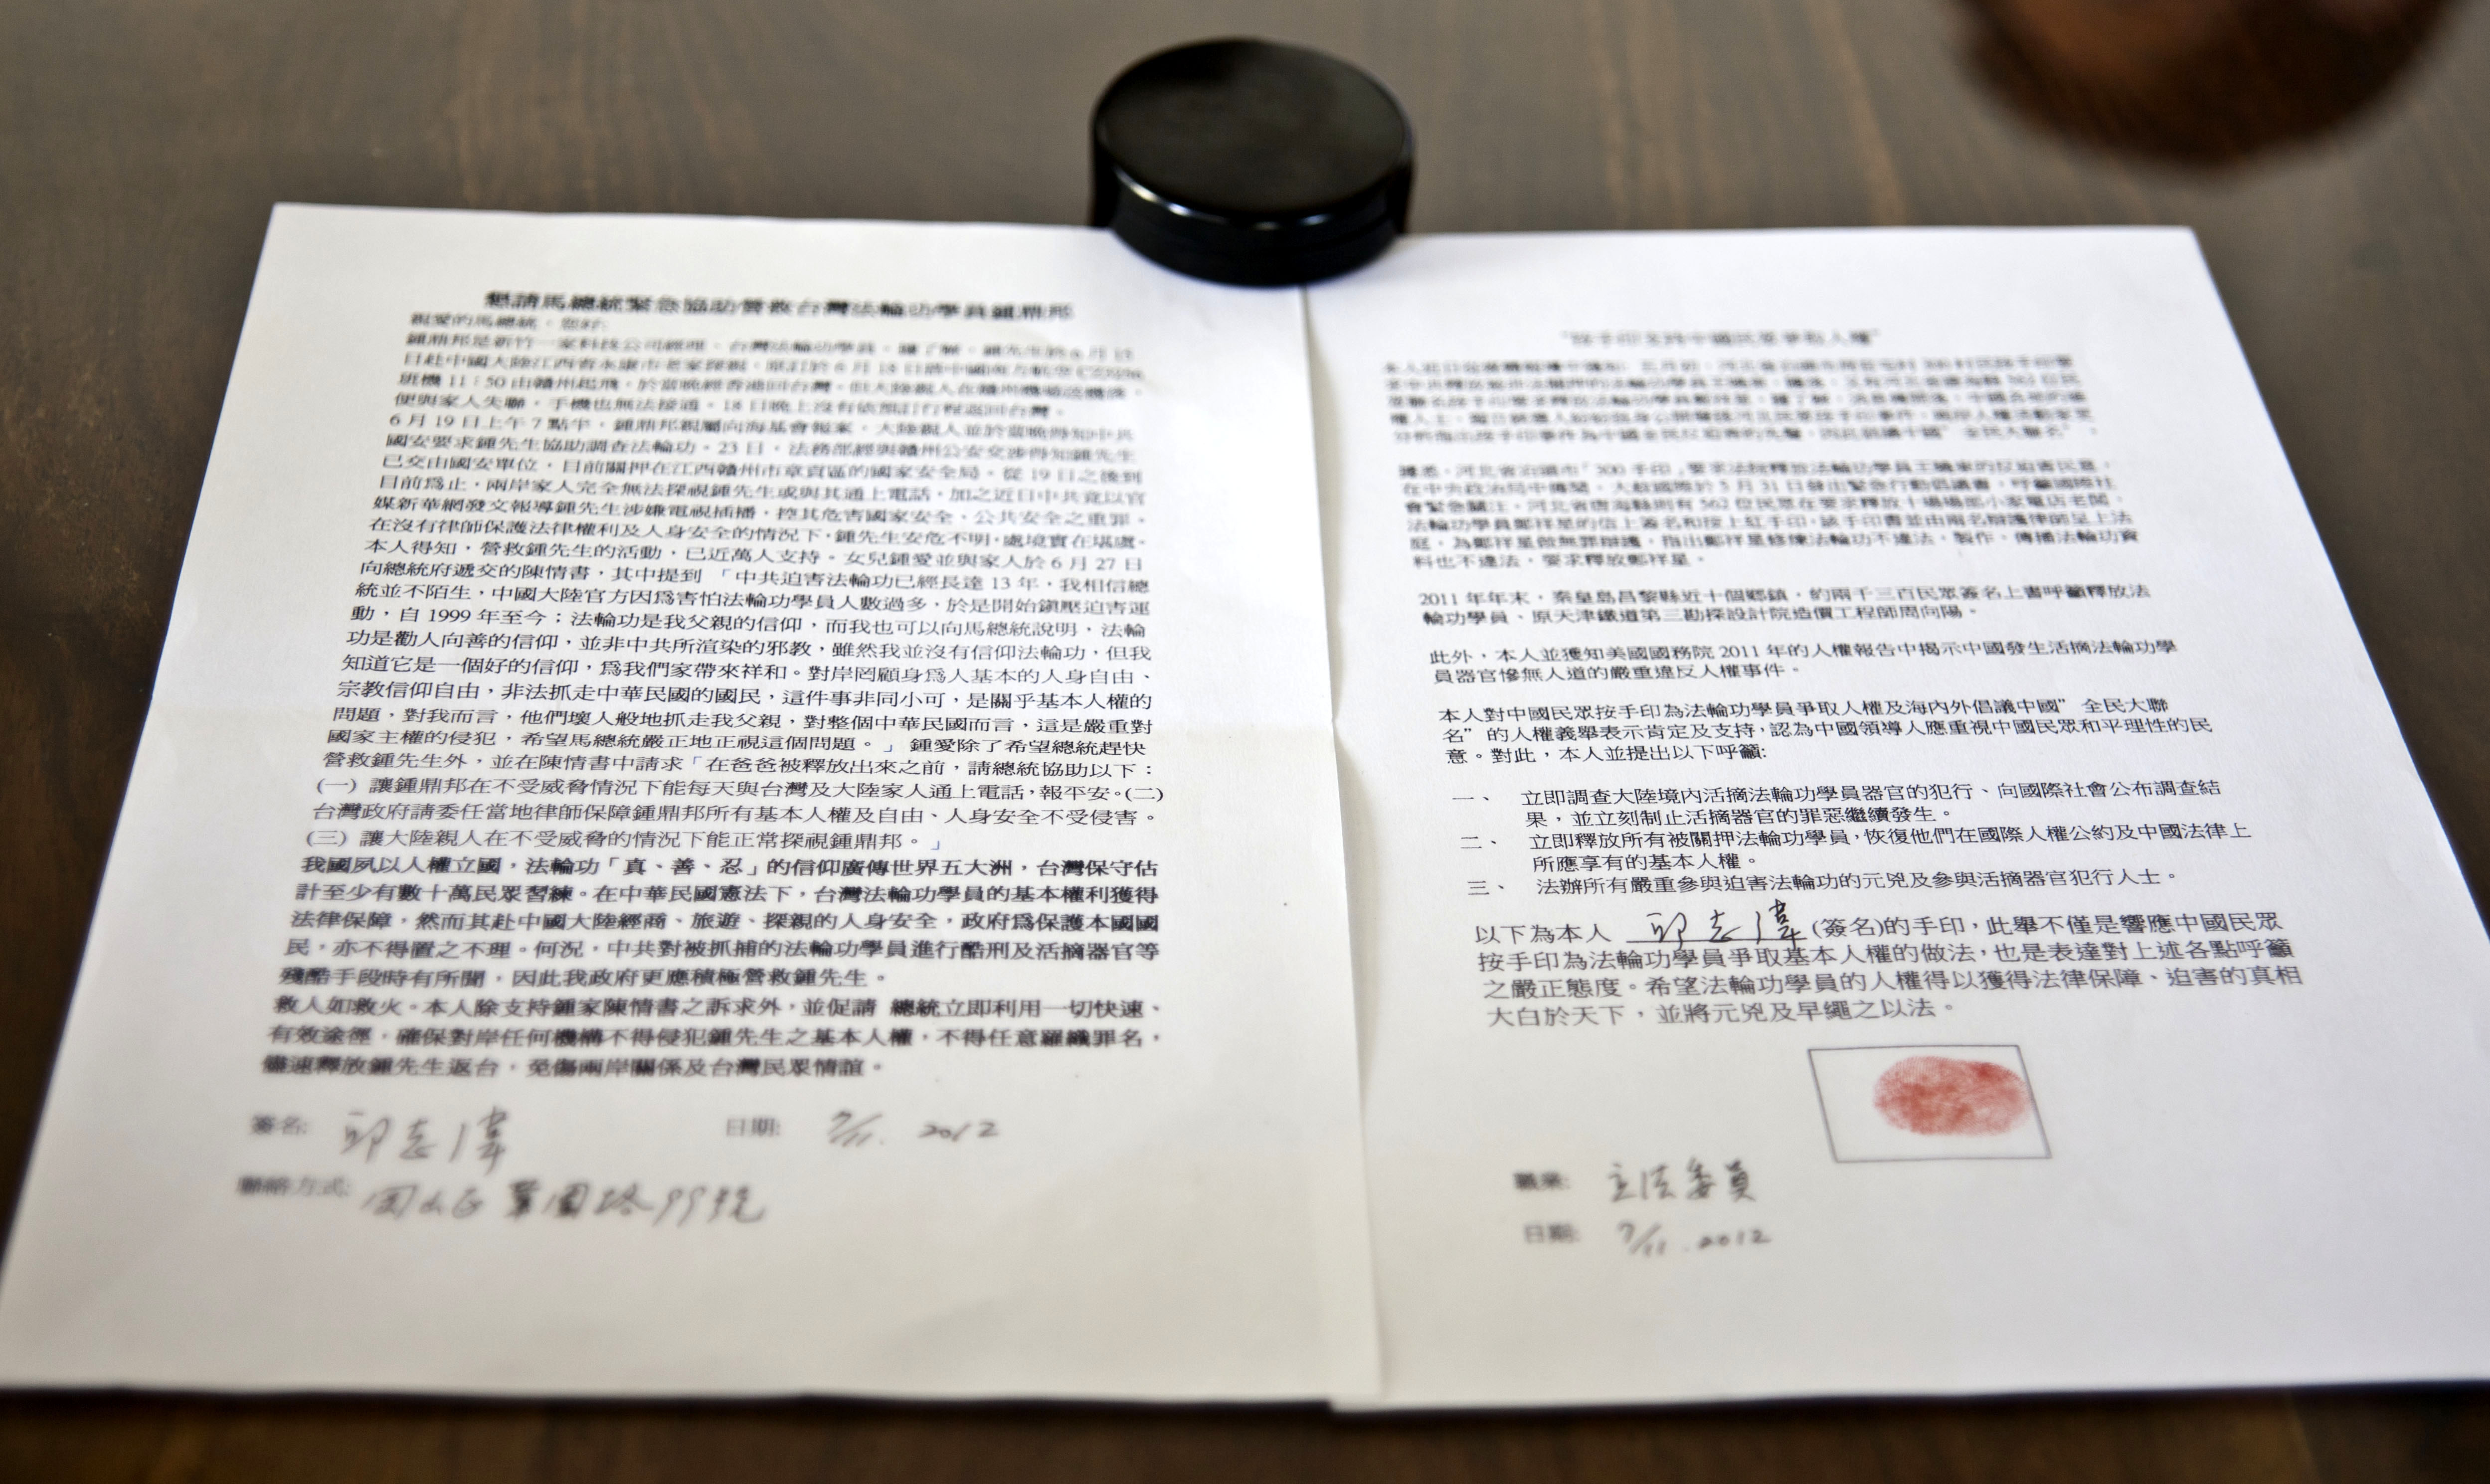 懇請馬總統緊急協助營救台灣法輪功學員鍾鼎邦
親愛的馬總統,您好:
鍾鼎邦是新竹一家科技公司經理、台灣法輪功學員。據了解,鍾先生於6月15
日赴中國大陸江西省永康市老家探親,原訂於6月18日搭中國南方航空
班機11:50由贛州起飛,於當晚經香港回台灣。但大陸親人在贛州機場送機後,
便與家人失聯,手機也無法接通。18日晚上沒有依原訂行程返回台灣。
6月19日上午7點半,鍾鼎邦親屬向海基會報案。大陸親人並於當晚得知中共
國安要求鍾先生協助調查法輪功。23日,法務部經與贛州公安交涉得知鍾先生
已交由國安單位,目前關押在江西贛州市章貢區的國家安全局。從19日之後到
目前爲止,兩岸家人完全無法探視鍾先生或與其通上電話,加之近日中共竟以官
媒新華網發文報導鍾先生涉嫌電視插播,控其危害國家安全、公共安全之重罪。
在沒有律師保護法律權利及人身安全的情況下,鍾先生安危不明,處境實在堪虞。
本人得知,營救鍾先生的活動,已近萬人支持。女兒鍾愛並與家人於6月27日
向總統府遞交的陳情書,其中提到「中共迫害法輪功已經長達13年,我相信總
統並不陌生,中國大陸官方因爲害怕法輪功學員人數過多,於是開始鎮壓迫害運
動,自1999年至今;法輪功是我父親的信仰,而我也可以向馬總統說明,法輪
功是勸人向善的信仰,並非中共所渲染的邪教,雖然我並沒有信仰法輪功,但我
知道它是一個好的信仰,爲我們家帶來祥和。對岸罔顧身爲人基本的人身自由、
宗教信仰自由,非法抓走中華民國的國民,這件事非同小可,是關乎基本人權的
問題,對我而言,他們壞人般地抓走我父親,對整個中華民國而言,這是嚴重對
國家主權的侵犯,希望馬總統嚴正地正視這個問題。」鍾愛除了希望總統趕快
營救鍾先生外,並在陳情書中請求「在爸爸被釋放出來之前,請總統協助以下:
(一) 讓鍾鼎邦在不受威脅情況下能每天與台灣及大陸家人通上電話,報平安。(二)
台灣政府請委任當地律師保障鍾鼎邦所有基本人權及自由、人身安全不受侵害。
(三) 讓大陸親人在不受威脅的情況下能正常探視鍾鼎邦。」
我國夙以人權立國,法輪功「真、善、忍」的信仰廣傳世界五大洲,台灣保守估
計至少有數十萬民眾習練。在中華民國憲法下,台灣法輪功學員的基本權利獲得
法律保障,然而其赴中國大陸經商、旅遊、探親的人身安全,政府爲保護本國國
民,亦不得置之不理。何況,中共對被抓捕的法輪功學員進行酷刑及活摘器官等
殘酷手段時有所聞,因此我政府更應積極營救鍾先生。
救人如救火。本人除支持鍾家陳情書之訴求外,並促請 總統立即利用一切快速、
有效途徑,確保對岸任何機構不得侵犯鍾先生之基本人權,不得任意羅織罪名,
儘速釋放鍾先生返台,免傷兩岸關係及台灣民眾情誼。
簽名: 邱志偉 日期: 7/11. 2012
聯絡方式: 岡山區 菓園路99號
"按手印支持中國民眾爭取人權"
據悉,河北省泊頭市「300手印」要求法院釋放法輪功學員王曉東的反迫害民意,
在中央政治局中傳閱。大赦國際於5月31日發出緊急行動倡議書,呼籲國際社
會緊急關注。河北省唐海縣則有562位民眾在要求釋放十場場部小家電店老闆、
法輪功學員鄭祥星的信上簽名和按上紅手印,該手印書並由兩名辯護律師呈上法
庭,為鄭祥星做無罪辯護,指出鄭祥星修煉法輪功不違法,製作、傳播法輪功資
料也不違法,要求釋放鄭祥星。
2011年年末,秦皇島昌黎縣近十個鄉鎮,約兩千三百民眾簽名上書呼籲釋放法
輪功學員、原天津鐵道第三勘探設計院造價工程師周向陽。
此外,本人並獲知美國國務院2011年的人權報告中揭示中國發生活摘法輪功學
員器官慘無人道的嚴重違反人權事件。
本人對中國民眾按手印為法輪功學員爭取人權及海內外倡議中國"全民大聯
名"的人權義舉表示肯定及支持,認為中國領導人應重視中國民眾和平理性的民
意。對此,本人並提出以下呼籲:
一、 立即調查大陸境內活摘法輪功學員器官的犯行、向國際社會公布調查結
果,並立刻制止活摘器官的罪惡繼續發生。
二、 立即釋放所有被關押法輪功學員,恢復他們在國際人權公約及中國法律上
所應享有的基本人權。
三、 法辦所有嚴重參與迫害法輪功的元兇及參與活摘器官犯行人士。
以下為本人 邱志偉 (簽名)的手印,此舉不僅是響應中國民眾
按手印為法輪功學員爭取基本人權的做法,也是表達對上述各點呼籲
之嚴正態度。希望法輪功學員的人權得以獲得法律保障、迫害的真相
大白於天下,並將元兇及早繩之以法。
職業: 立法委員
日期: 7/11. 2012